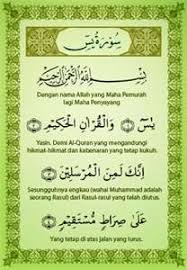 سُوْرَةُ يٰسٓ
بِسْمِ اللهِ الرَّحْمٰنِ الرَّحِيْمِ
Dengan nama Allah yang Maha Pemurah
lagi Maha Penyayang
يٰسٓ ۝ وَالْقُرْاٰنِ الْحَكِيْمِ ۝
Yasin. Demi Al-Quran yang mengandungi
hikmat-hikmat dan kebenaran yang tetap kukuh.
اِنَّكَ لَمِنَ الْمُرْسَلِيْنَ ۝
Sesungguhnya engkau (wahai Muhammad adalah
seorang Rasul) dari Rasul-rasul yang telah diutus.
عَلٰى صِرَاطٍ مُّسْتَقِيْمٍ ۝
Yang tetap di atas jalan yang lurus.